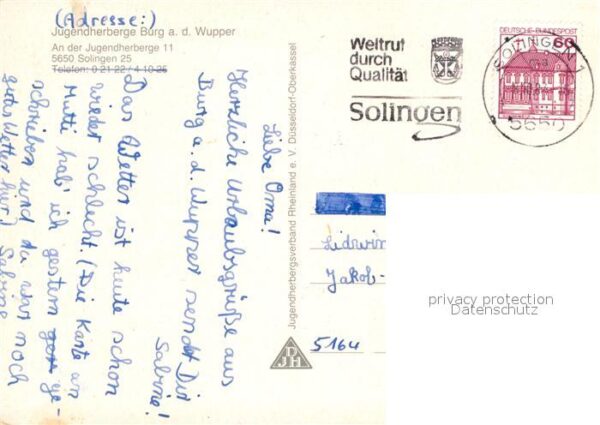 (Adresse:)
Jugendherberge Burg a. d. Wupper
An der Jugendherberge 11
5650 Solingen 25
Telefon: 0 21 22 / 4 10 25
Liebe Oma!
Herzliche Urlaubsgrüße aus
Burg a. d. Wupper sendet Dir
Sabine!
Das Wetter ist heute schon
wieder schlecht. (Die Karte an
Mutti hab' ich gestern ge-
schrieben und da war noch
gutes Wetter hier.) Sabine
Jugendherbergsverband Rheinland e. V. Düsseldorf-Oberkassel
DJH
Weltruf
durch
Qualität
Solingen
DEUTSCHE BUNDESPOST
60
SOLINGEN 1
5650
Jakob-
5164
privacy protection
Datenschutz